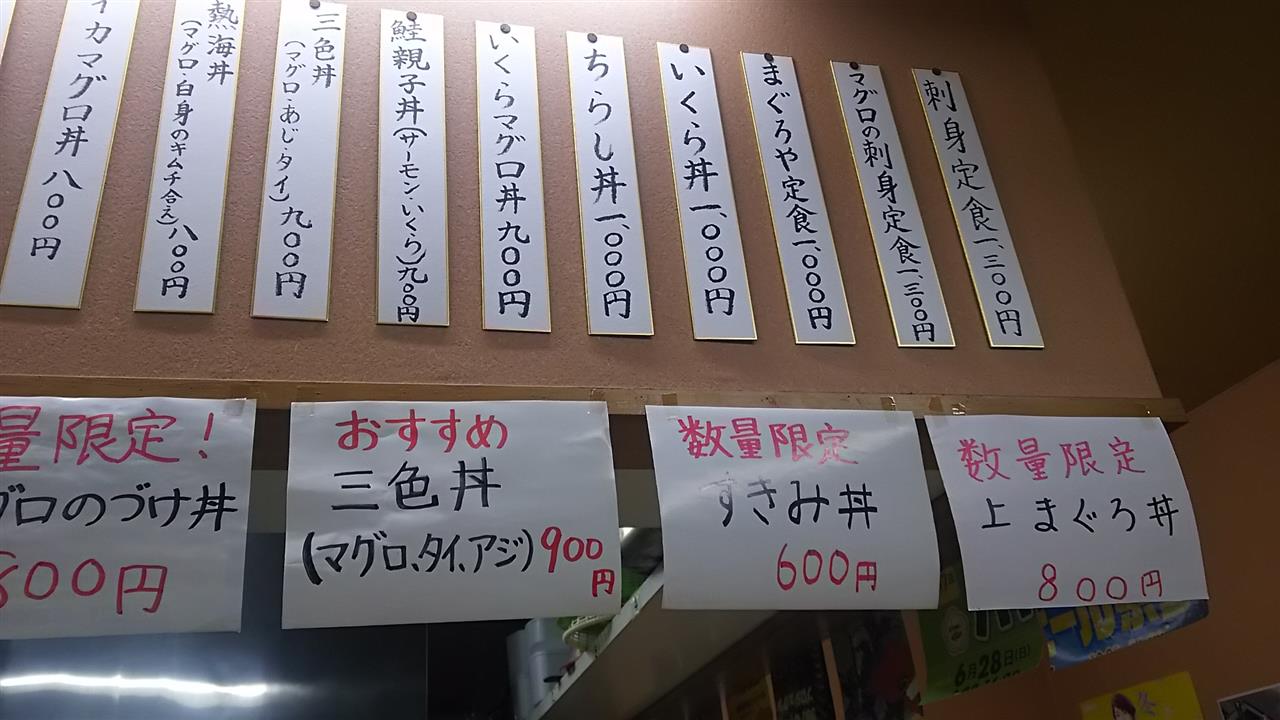 刺身定食一、三〇〇円
マグロの刺身定食一、三〇〇円
まぐろや定食一、〇〇〇円
いくら丼一、〇〇〇円
ちらし丼一、〇〇〇円
いくらマグロ丼九〇〇円
鮭親子丼(サーモン・いくら)九〇〇円
三色丼
(マグロ・あじ・タイ)九〇〇円
熱海丼
(マグロ・白身のキムチ合え)八〇〇円
イカマグロ丼八〇〇円
量限定!
グロのづけ丼
800円
おすすめ
三色丼
(マグロ、タイ、アジ)900円
数量限定
すきみ丼
600円
数量限定
上まぐろ丼
800円
6月28日(日)